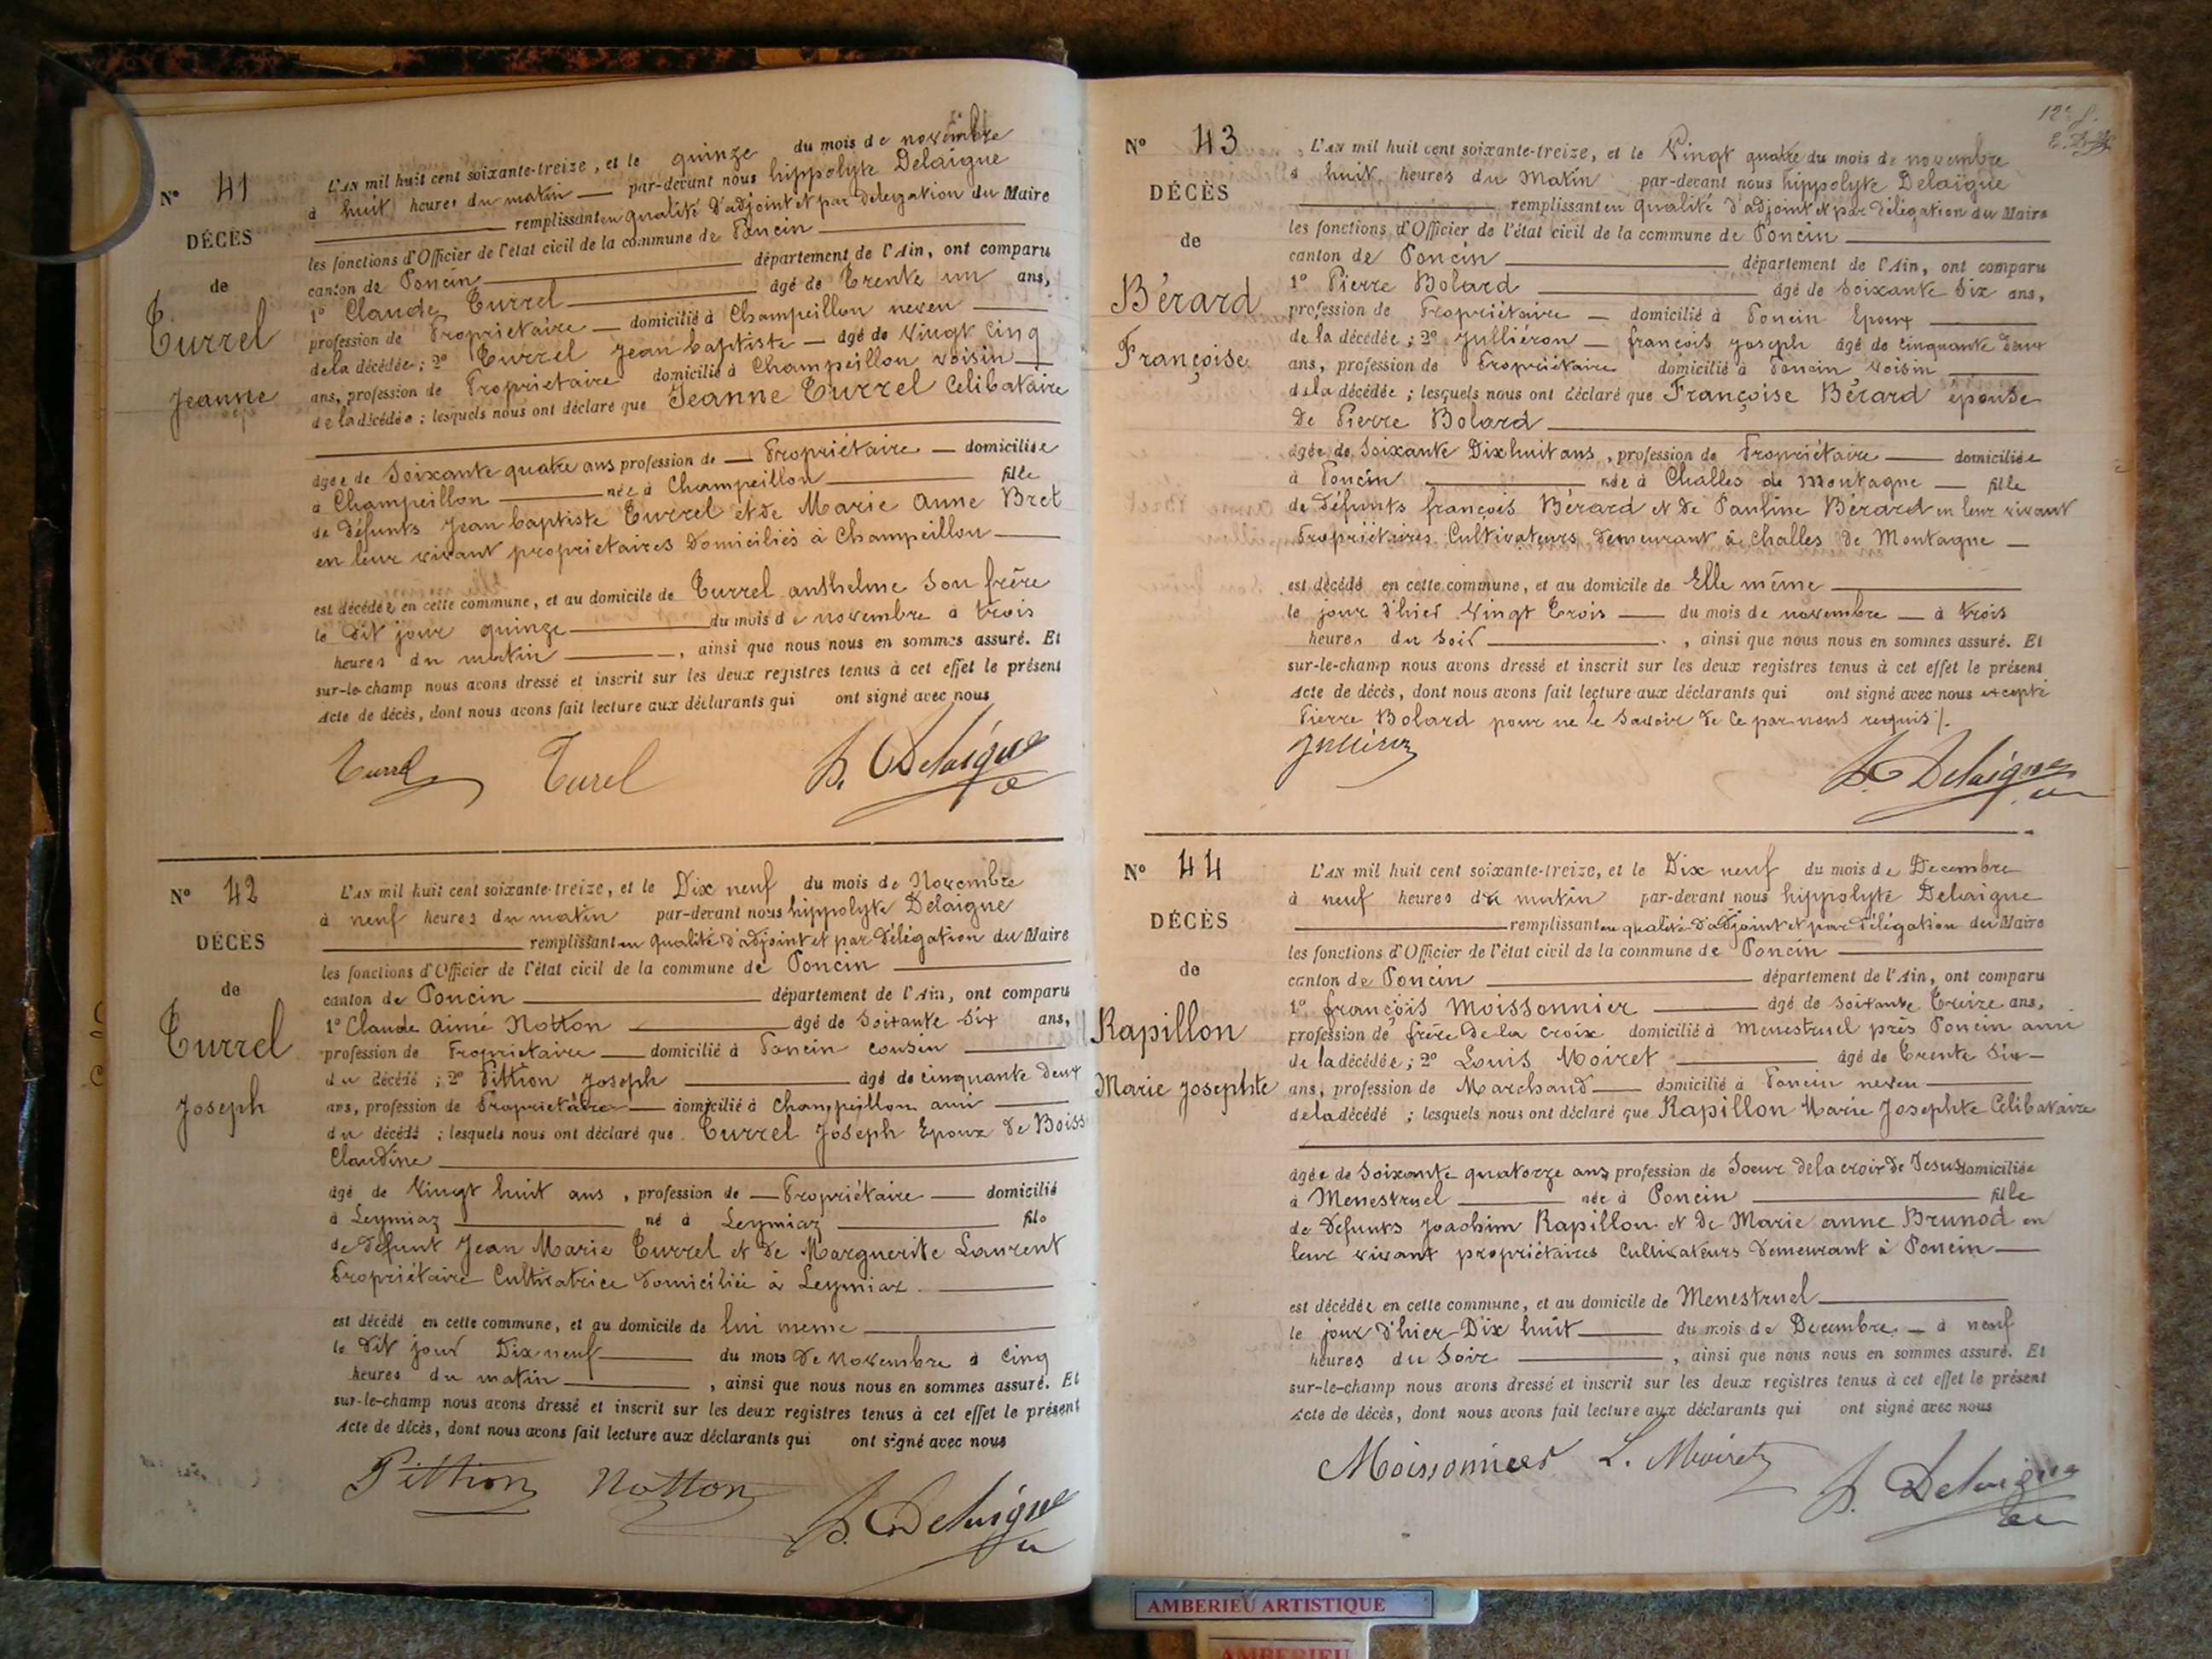 N° 41
DÉCÈS
de
Turrel
Jeanne
L'AN mil huit cent soixante-treize, et le quinze du mois de novembre
à huit heures du matin par-devant nous hippolyte Delaigue
remplissant en qualité d'adjoint et par délégation du Maire
les fonctions d'Officier de l'état civil de la commune de Poncin
canton de Poncin département de l'Ain, ont comparu
1° Claude Turrel âgé de Trente un ans,
profession de Propriétaire domicilié à Champeillon neveu
de la décédée ; 2° Turrel Jean baptiste âgé de Vingt cinq
ans, profession de Propriétaire domicilié à Champeillon voisin
de la décédée ; lesquels nous ont déclaré que Jeanne Turrel Célibataire
âgée de Soixante quatre ans profession de Propriétaire domiciliée
à Champeillon née à Champeillon fille
de défunts Jean baptiste Turrel et de Marie Anne Bret
en leur vivant propriétaires Domiciliés à Champeillon
est décédée en cette commune, et au domicile de Turrel anthelme Son frère
le dit jour quinze du mois de novembre à trois
heures du matin , ainsi que nous nous en sommes assuré. Et
sur-le-champ nous avons dressé et inscrit sur les deux registres tenus à cet effet le présent
Acte de décès, dont nous avons fait lecture aux déclarants qui ont signé avec nous
Turrel Turel h. Delaigue
N° 42
DÉCÈS
de
Turrel
Joseph
L'AN mil huit cent soixante-treize, et le Dix neuf du mois de Novembre
à neuf heures du matin par-devant nous hippolyte Delaigue
remplissant en qualité d'adjoint et par délégation du Maire
les fonctions d'Officier de l'état civil de la commune de Poncin
canton de Poncin département de l'Ain, ont comparu
1° Claude Aimé Notton âgé de Soixante Six ans,
profession de Propriétaire domicilié à Poncin cousin
du décédé ; 2° Pittion Joseph âgé de cinquante deux
ans, profession de Propriétaire domicilié à Champeillon ami
du décédé ; lesquels nous ont déclaré que Turrel Joseph Epoux de Boiss
Claudine
âgé de Vingt huit ans , profession de Propriétaire domicilié
à Leymiaz né à Leymiaz fils
de défunt Jean Marie Turrel et de Marguerite Laurent
Propriétaire Cultivatrice domiciliée à Leymiaz
est décédé en cette commune, et au domicile de lui meme
le dit jour Dix neuf du mois de Novembre à cinq
heures du matin , ainsi que nous nous en sommes assuré. Et
sur-le-champ nous avons dressé et inscrit sur les deux registres tenus à cet effet le présent
Acte de décès, dont nous avons fait lecture aux déclarants qui ont signé avec nous
Pittion Notton h. Delaigue
12e f.
N° 43
DÉCÈS
de
Bérard
Françoise
L'AN mil huit cent soixante-treize, et le Vingt quatre du mois de novembre
à huit heures du Matin par-devant nous hippolyte Delaigue
remplissant en qualité d'adjoint et par délégation du Maire
les fonctions d'Officier de l'état civil de la commune de Poncin
canton de Poncin département de l'Ain, ont comparu
1° Pierre Bolard âgé de Soixante Dix ans,
profession de Propriétaire domicilié à Poncin Epoux
de la décédée ; 2° Julliéron françois joseph âgé de cinquante deux
ans, profession de Propriétaire domicilié à Poncin Voisin
de la décédée ; lesquels nous ont déclaré que Françoise Bérard épouse
de Pierre Bolard
âgée de Soixante Dix huit ans , profession de Propriétaire domiciliée
à Poncin née à Challes de Montagne fille
de défunts françois Bérard et de Pauline Bérard en leur vivant
Propriétaires Cultivateurs demeurant à Challes de Montagne
est décédé en cette commune, et au domicile de Elle même
le jour d'hier Vingt Trois du mois de novembre à trois
heures du Soir , ainsi que nous nous en sommes assuré. Et
sur-le-champ nous avons dressé et inscrit sur les deux registres tenus à cet effet le présent
Acte de décès, dont nous avons fait lecture aux déclarants qui ont signé avec nous excepté
Pierre Bolard pour ne le Savoir de ce par nous requis /.
h. Delaigue
N° 44
DÉCÈS
de
Rapillon
Marie Josephte
L'AN mil huit cent soixante-treize, et le Dix neuf du mois de Decembre
à neuf heures du matin par-devant nous hippolyte Delaigue
remplissant en qualité d'adjoint et par délégation du Maire
les fonctions d'Officier de l'état civil de la commune de Poncin
canton de Poncin département de l'Ain, ont comparu
1° françois Moissonnier âgé de Soixante Treize ans,
profession de frère de la croix domicilié à Menestruel près Poncin ami
de la décédée ; 2° Louis Moiret âgé de Trente Six
ans, profession de Marchand domicilié à Poncin neveu
de la décédé ; lesquels nous ont déclaré que Rapillon Marie Josephte Célibataire
âgée de Soixante quatorze ans profession de Soeur de la croix de Jesus domiciliée
à Menestruel née à Poncin fille
de défunts Joachim Rapillon et de Marie anne Brunod en
leur vivant propriétaires Cultivateurs demeurant à Poncin
est décédée en cette commune, et au domicile de Menestruel
le jour d'hier Dix huit du mois de Decembre à neuf
heures du Soir , ainsi que nous nous en sommes assuré. Et
sur-le-champ nous avons dressé et inscrit sur les deux registres tenus à cet effet le présent
Acte de décès, dont nous avons fait lecture aux déclarants qui ont signé avec nous
Moissonnier L. Moiret h. Delaigue
AMBERIEU ARTISTIQUE
AMBERIEU